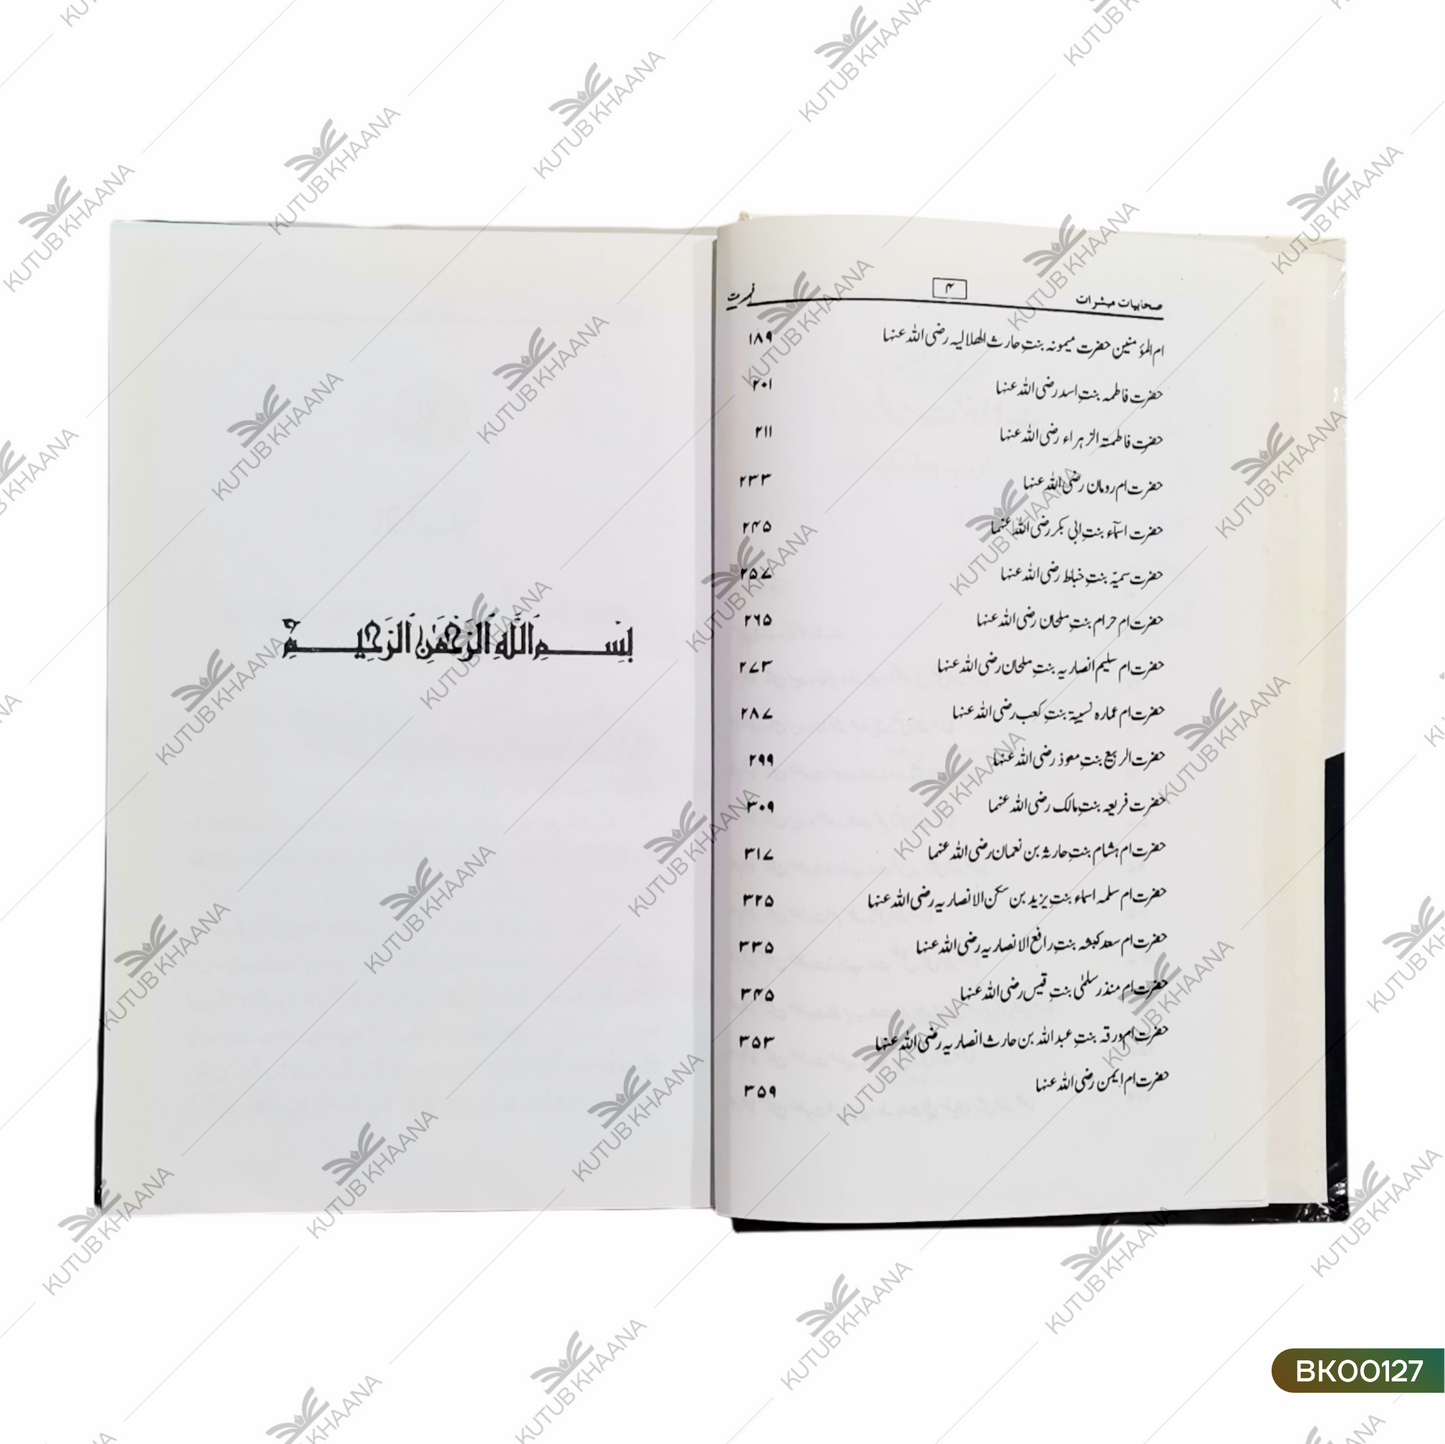 بِسْمِ اللَّهِ الرَّحْمَٰنِ الرَّحِيمِ
صحابیات مبشرات ۴ فہرست
ام المؤمنین حضرت میمونہ بنتِ حارث الھلالیہ رضی اللہ عنہا ۱۸۹
حضرت فاطمہ بنتِ اسد رضی اللہ عنہا ۲۰۱
حضرت فاطمۃ الزہراء رضی اللہ عنہا ۲۱۱
حضرت ام رومان رضی اللہ عنہا ۲۳۳
حضرت اسمآء بنتِ ابی بکر رضی اللہ عنہما ۲۴۵
حضرت سمیّہ بنتِ خباط رضی اللہ عنہا ۲۵۷
حضرت ام حرام بنتِ ملحان رضی اللہ عنہا ۲۶۵
حضرت ام سلیم انصاریہ بنتِ ملحان رضی اللہ عنہا ۲۷۳
حضرت ام عمارہ نسیبۃ بنتِ کعب رضی اللہ عنہا ۲۸۷
حضرت الربیع بنتِ معوذ رضی اللہ عنہا ۲۹۹
حضرت فریعہ بنتِ مالک رضی اللہ عنہما ۳۰۹
حضرت ام ہشام بنتِ حارثہ بن نعمان رضی اللہ عنہما ۳۱۷
حضرت ام سلمہ اسماء بنتِ یزید بن سکن الانصاریہ رضی اللہ عنہا ۳۲۵
حضرت ام سعد کبشہ بنتِ رافع الانصاریہ رضی اللہ عنہا ۳۳۵
حضرت ام منذر سلمٰی بنتِ قیس رضی اللہ عنہا ۳۴۵
حضرت ام ورقہ بنتِ عبد اللہ بن حارث انصاریہ رضی اللہ عنہا ۳۵۳
حضرت ام ایمن رضی اللہ عنہا ۳۵۹
KUTUB KHAANA
BK00127